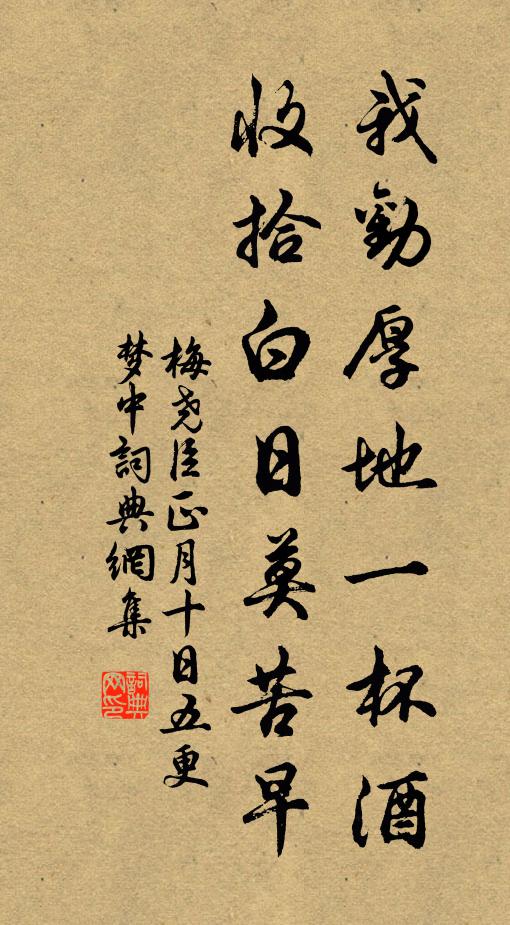 我勸厚地一杯酒
收拾白日莫苦早
梅尧臣正月十日五更
梦中詞典網集
詞典
网印